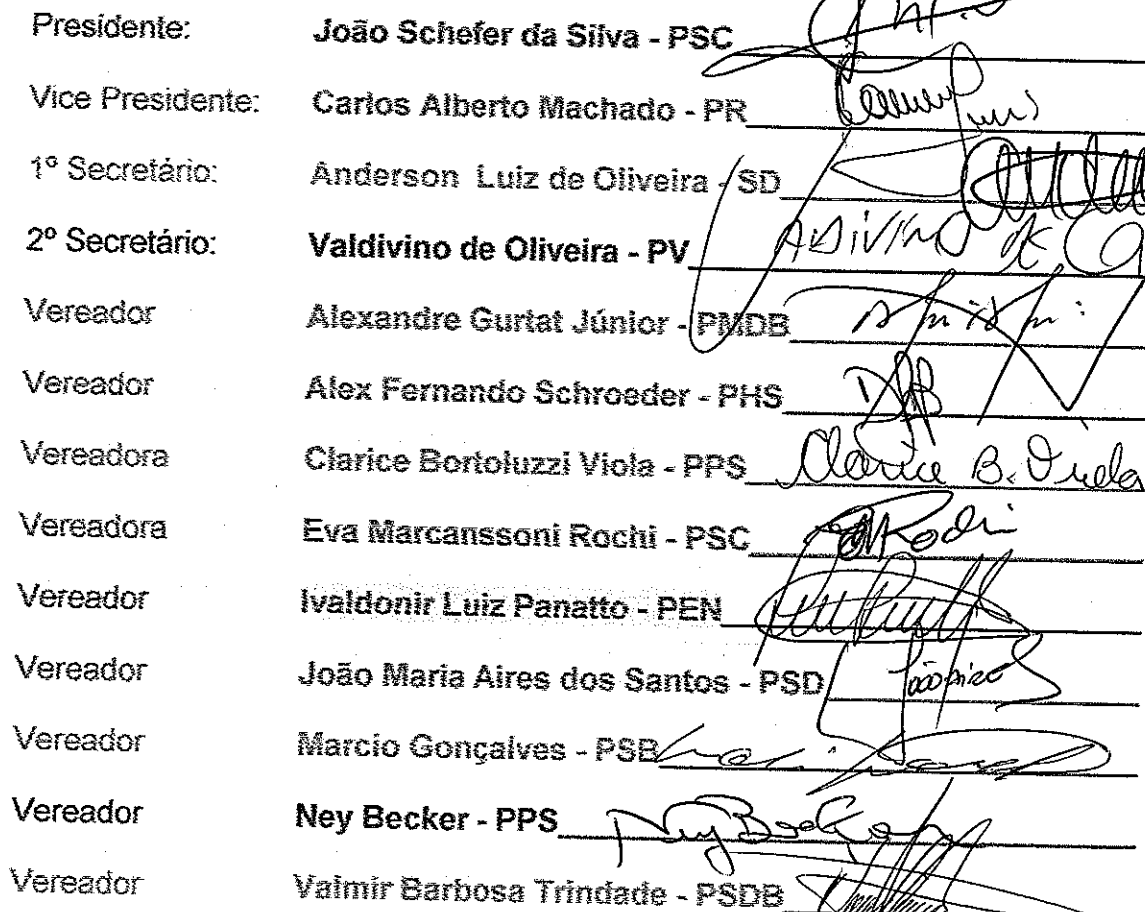 Presidente: João Schefer da Silva - PSC
Vice Presidente: Carlos Alberto Machado - PR
1º Secretário: Anderson Luiz de Oliveira - SD
2º Secretário: Valdivino de Oliveira - PV
Vereador Alexandre Gurtat Júnior - PMDB
Vereador Alex Fernando Schroeder - PHS
Vereadora Clarice Bortoluzzi Viola - PPS Clarice B. Viola
Vereadora Eva Marcanssoni Rochi - PSC
Vereador Ivaldonir Luiz Panatto - PEN
Vereador João Maria Aires dos Santos - PSD
Vereador Marcio Gonçalves - PSB
Vereador Ney Becker - PPS Ney Becker
Vereador Valmir Barbosa Trindade - PSDB